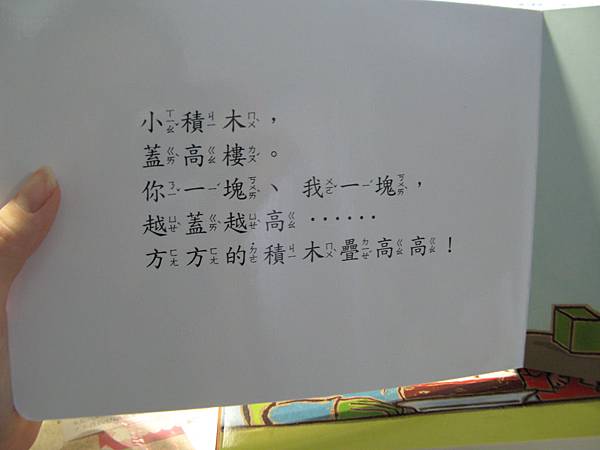 小積木，
蓋高樓。
你一塊、我一塊，
越蓋越高……
方方的積木疊高高！